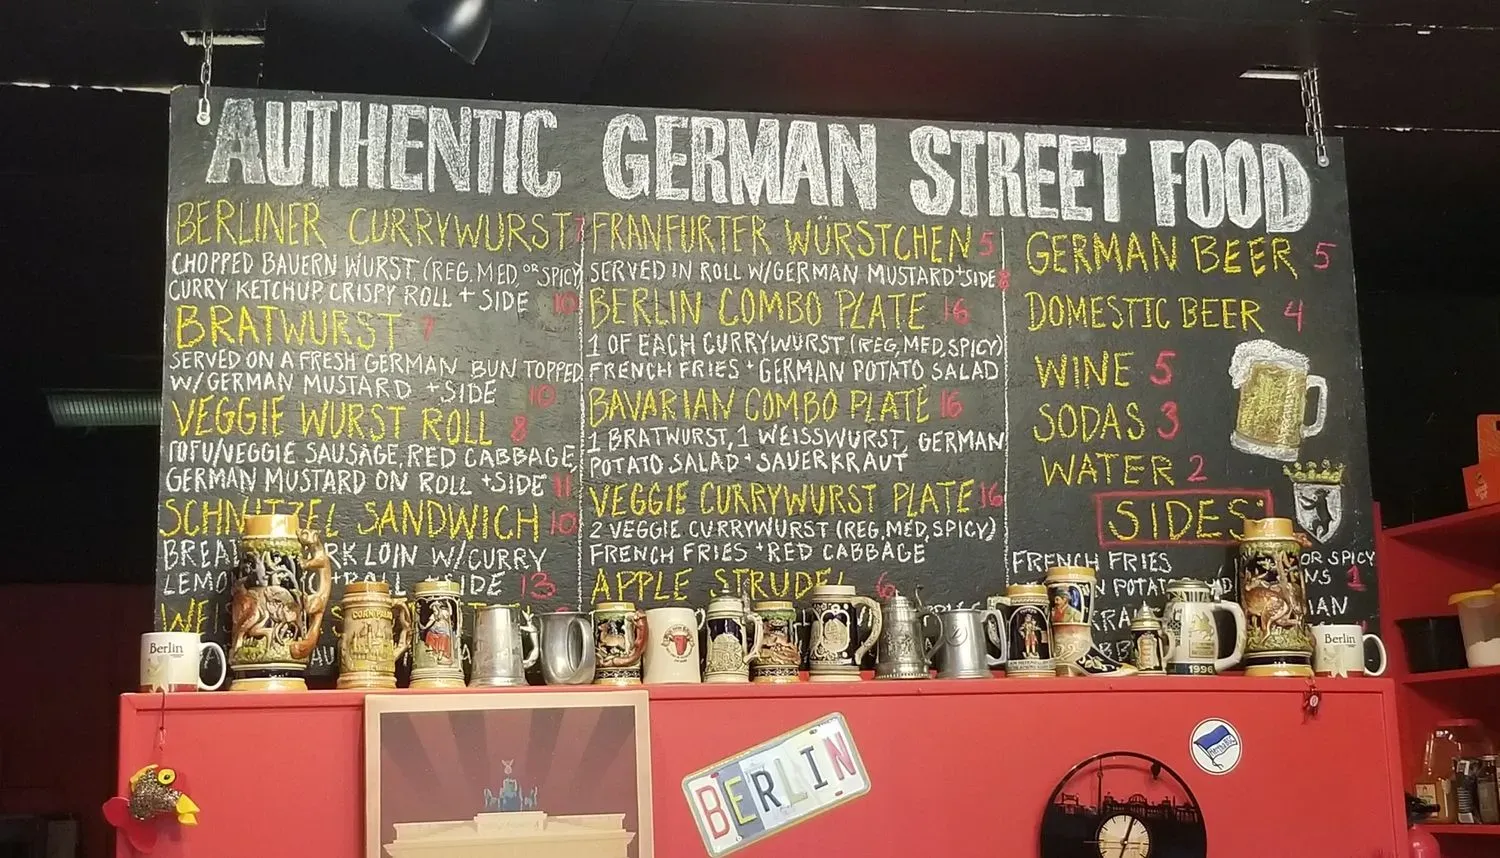 AUTHENTIC GERMAN STREET FOOD
BERLINER CURRYWURST 7
CHOPPED BAUERN WURST (REG, MED, OR SPICY
CURRY KETCHUP, CRISPY ROLL + SIDE 10
BRATWURST 7
SERVED ON A FRESH GERMAN BUN TOPPED
W/GERMAN MUSTARD + SIDE 10
VEGGIE WURST ROLL 8
TOFU/VEGGIE SAUSAGE, RED CABBAGE,
GERMAN MUSTARD ON ROLL + SIDE 11
SCHNITZEL SANDWICH 10
LOIN W/CURRY
13
FRANKFURTER WÜRSTCHEN 5
SERVED IN ROLL W/GERMAN MUSTARD + SIDE 8
BERLIN COMBO PLATE 16
1 OF EACH CURRYWURST (REG, MED, SPICY)
FRENCH FRIES + GERMAN POTATO SALAD
BAVARIAN COMBO PLATE 16
1 BRATWURST, 1 WEISSWURST, GERMAN
POTATO SALAD + SAUERKRAUT
VEGGIE CURRYWURST PLATE 16
2 VEGGIE CURRYWURST (REG, MED, SPICY)
FRENCH FRIES + RED CABBAGE
APPLE STRUDEL 6
GERMAN BEER 5
DOMESTIC BEER 4
WINE 5
SODAS 3
WATER 2
SIDES:
FRENCH FRIES OR SPICY
1
Berlin
1996
Berlin
BERLIN
Hertha BSC